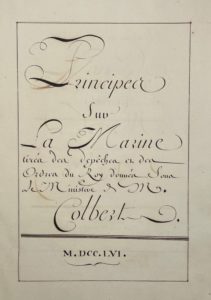 Principes
Sur
La Marine
tirés des depêches et des
Ordres du Roy donnés Sous
le Ministère de M.
Colbert
M.DCC.LVI.